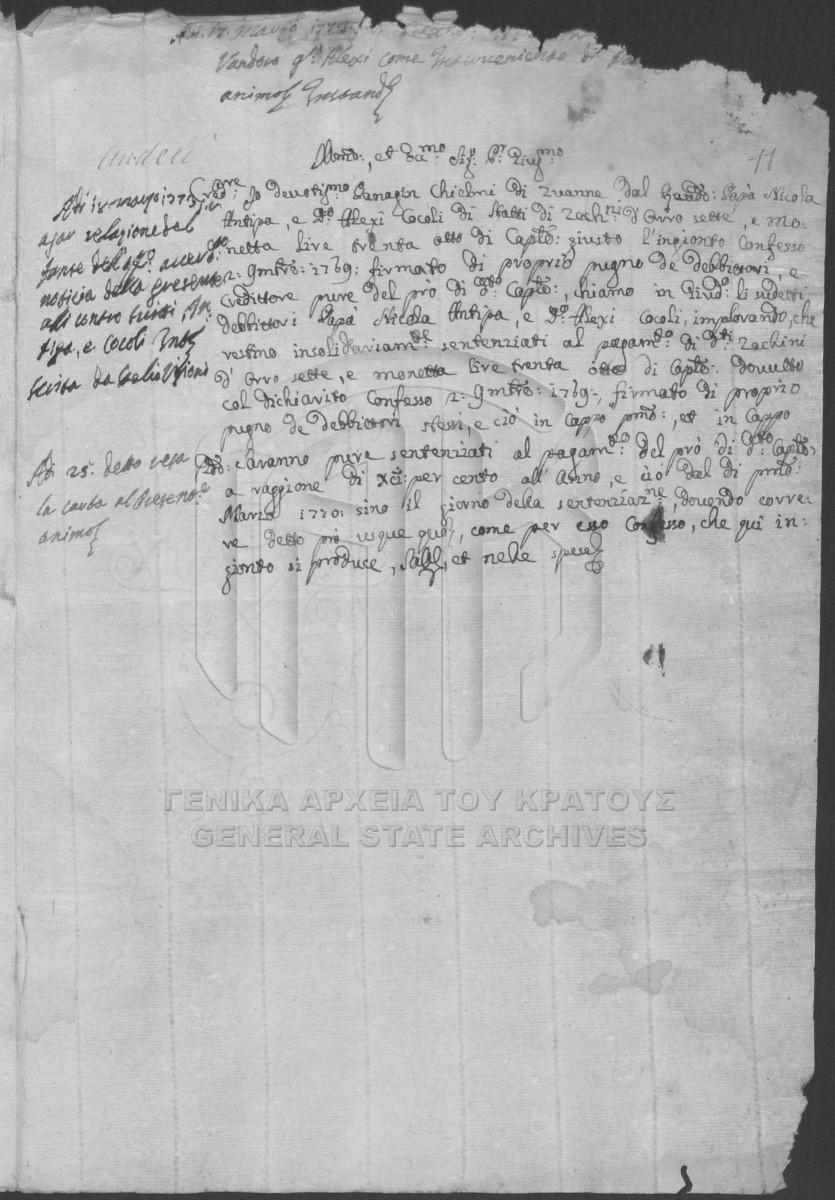 Adi 17. Marzo 1773
Vandoro q.m Alexi come Interveniente di
animo
11
Mon.do, et Ecc.mo Sig.r
Adi 18 marzo 1773
a jar relazione del
fante dell' accerd.to
noticia della presente
alli contro scritti An:
tipa, e Cocoli
scritta da
Adi 25. detto resa
la carta al Presen.e
animo
Cre.re Io devotis.mo Panagin Chielmi di Zuanne dal Papà Nicola
Antipa, e Alexi Cocoli di Statti di Zech.ni d'Orro sette, e mo:
netta lire trenta otto di Cap.le: giusto l'ingionto Confesso
2: 9mbre: 1769: firmato di proprio pugno de debbittori, e
Credittore pure del prò di d.to Cap.le:, chiamo in Giud.o: li sudetti
debbittori Papà Nicola Antipa, e Alexi Cocoli, implorando, che
restino insolidariam.te sentenziati al pagam.to: di d.ti Zechini
d'Orro sette, e monetta lire trenta otto di Cap.le: dovutto
col dichiarito Confesso 2: 9mbre: 1769:, firmato di proprio
pugno de Debbittori stessi, e ciò in Cappo p.mo:, et in Cappo
2.do: saranno pure sentenziati al pagam.to: del prò di d.to Cap.le:
a raggione di X: per cento all'Anno, e ciò dal dì p.mo:
Marzo 1770: sino il giorno della sentenziaz.ne:, dovendo corre:
re detto prò usque quo, come per esso Confesso, che qui in:
gionto si produce, Salv, et nelle spese
ΓΕΝΙΚΑ ΑΡΧΕΙΑ ΤΟΥ ΚΡΑΤΟΥΣ
GENERAL STATE ARCHIVES